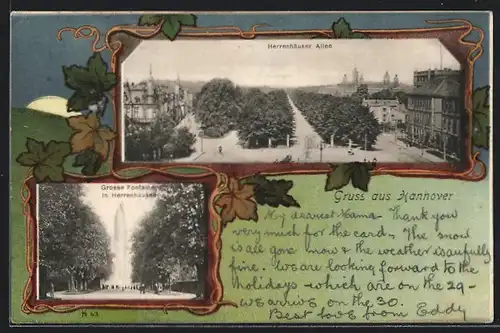 Herrenhäuser Allee
Grosse Fontaine
in Herrenhausen
Gruss aus Hannover
My dearest Mama- Thank you
very much for the card. The snow
is all gone now & the weather is awfully
fine. We are looking forward to the
holidays - which are on the 29 -
we arrive on the 30.
Best love from Eddy